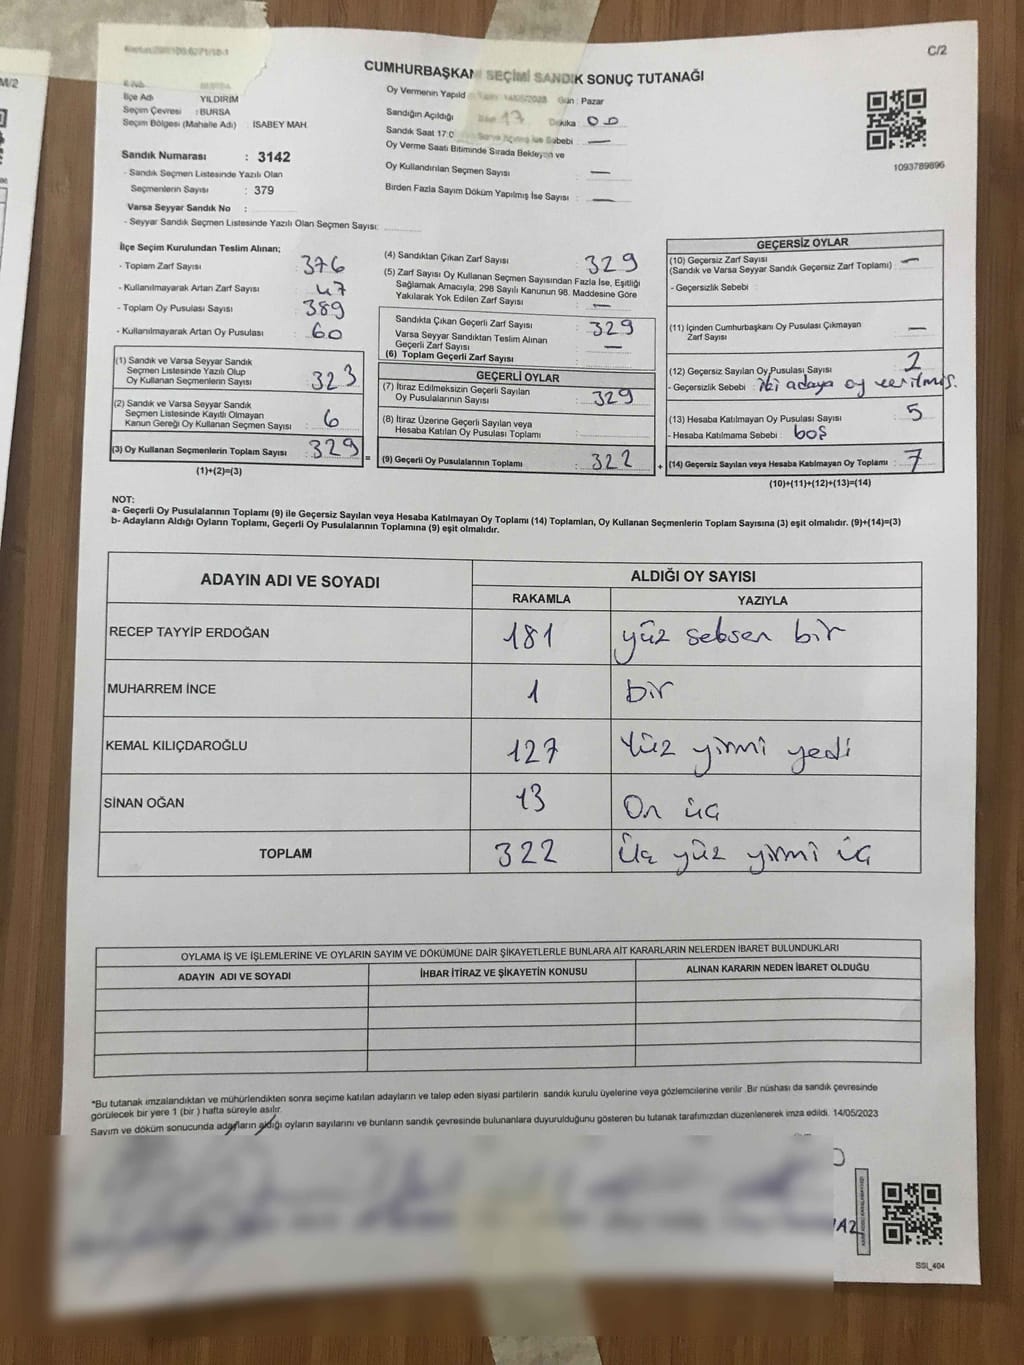 C/2
CUMHURBAŞKANI SEÇİMİ SANDIK SONUÇ TUTANAĞI
İlçe Adı YILDIRIM
Seçim Çevresi : BURSA
Seçim Bölgesi (Mahalle Adı) : ISABEY MAH.
Sandık Numarası : 3142
- Sandık Seçmen Listesinde Yazılı Olan
Seçmenlerin Sayısı : 379
Varsa Seyyar Sandık No :
- Seyyar Sandık Seçmen Listesinde Yazılı Olan Seçmen Sayısı:
Oy Vermenin Yapıld 14/05/2023 Gün : Pazar
Sandığın Açıldığı 17 Dakika : 00
Sandık Saat 17:0 Sebebi : —
Oy Verme Saati Bitiminde Sırada Bekleyen ve
Oy Kullandırılan Seçmen Sayısı : —
Birden Fazla Sayım Döküm Yapılmış İse Sayısı : —
1093789896
İlçe Seçim Kurulundan Teslim Alınan;
- Toplam Zarf Sayısı : 376
- Kullanılmayarak Artan Zarf Sayısı : 47
- Toplam Oy Pusulası Sayısı : 389
- Kullanılmayarak Artan Oy Pusulası : 60
(1) Sandık ve Varsa Seyyar Sandık
Seçmen Listesinde Yazılı Olup
Oy Kullanan Seçmenlerin Sayısı : 323
(2) Sandık ve Varsa Seyyar Sandık
Seçmen Listesinde Kayıtlı Olmayan
Kanun Gereği Oy Kullanan Seçmen Sayısı : 6
(3) Oy Kullanan Seçmenlerin Toplam Sayısı : 329 =
(1)+(2)=(3)
(4) Sandıktan Çıkan Zarf Sayısı : 329
(5) Zarf Sayısı Oy Kullanan Seçmen Sayısından Fazla İse, Eşitliği
Sağlamak Amacıyla, 298 Sayılı Kanunun 98. Maddesine Göre
Yakılarak Yok Edilen Zarf Sayısı : —
Sandıkta Çıkan Geçerli Zarf Sayısı : 329
Varsa Seyyar Sandıktan Teslim Alınan
Geçerli Zarf Sayısı : —
(6) Toplam Geçerli Zarf Sayısı :
GEÇERLİ OYLAR
(7) İtiraz Edilmeksizin Geçerli Sayılan
Oy Pusulalarının Sayısı : 329
(8) İtiraz Üzerine Geçerli Sayılan veya
Hesaba Katılan Oy Pusulası Toplamı :
(9) Geçerli Oy Pusulalarının Toplamı : 322 +
GEÇERSİZ OYLAR
(10) Geçersiz Zarf Sayısı : —
(Sandık ve Varsa Seyyar Sandık Geçersiz Zarf Toplamı)
- Geçersizlik Sebebi :
(11) İçinden Cumhurbaşkanı Oy Pusulası Çıkmayan
Zarf Sayısı : —
(12) Geçersiz Sayılan Oy Pusulası Sayısı : 2
- Geçersizlik Sebebi : iki adaya oy verilmiş.
(13) Hesaba Katılmayan Oy Pusulası Sayısı : 5
- Hesaba Katılmama Sebebi : boş
(14) Geçersiz Sayılan veya Hesaba Katılmayan Oy Toplamı : 7
(10)+(11)+(12)+(13)=(14)
NOT:
a- Geçerli Oy Pusulalarının Toplamı (9) ile Geçersiz Sayılan veya Hesaba Katılmayan Oy Toplamı (14) Toplamları, Oy Kullanan Seçmenlerin Toplam Sayısına (3) eşit olmalıdır. (9)+(14)=(3)
b- Adayların Aldığı Oyların Toplamı, Geçerli Oy Pusulalarının Toplamına (9) eşit olmalıdır.
ADAYIN ADI VE SOYADI ALDIĞI OY SAYISI
RAKAMLA YAZIYLA
RECEP TAYYİP ERDOĞAN 181 yüz seksen bir
MUHARREM İNCE 1 bir
KEMAL KILIÇDAROĞLU 127 Yüz yirmi yedi
SİNAN OĞAN 13 On üç
TOPLAM 322 Üç yüz yirmi üç
OYLAMA İŞ VE İŞLEMLERİNE VE OYLARIN SAYIM VE DÖKÜMÜNE DAİR ŞİKAYETLERLE BUNLARA AİT KARARLARIN NELERDEN İBARET BULUNDUKLARI
ADAYIN ADI VE SOYADI İHBAR İTİRAZ VE ŞİKAYETİN KONUSU ALINAN KARARIN NEDEN İBARET OLDUĞU
*Bu tutanak imzalandıktan ve mühürlendikten sonra seçime katılan adayların ve talep eden siyasi partilerin sandık kurulu üyelerine veya gözlemcilerine verilir. Bir nüshası da sandık çevresinde
görülecek bir yere 1 (bir ) hafta süreyle asılır.
Sayım ve döküm sonucunda adayların aldığı oyların sayılarını ve bunların sandık çevresinde bulunanlara duyurulduğunu gösteren bu tutanak tarafımızdan düzenlenerek imza edildi. 14/05/2023
SSI_404